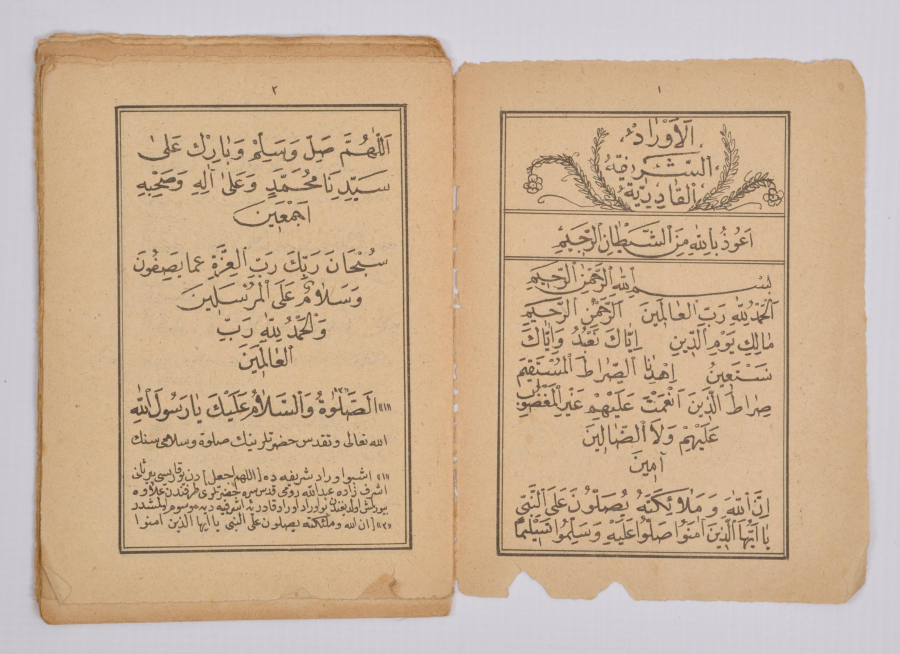 ١
الأوراد
الشريفة
القادرية
اعوذ بالله من الشيطان الرجيم
بسم الله الرحمن الرحيم
الحمد لله رب العالمين الرحمن الرحيم
مالك يوم الدين إياك نعبد وإياك
نستعين إهدنا الصراط المستقيم
صراط الذين انعمت عليهم غير المغضوب
عليهم ولا الضالين
آمين
ان الله و ملائكته يصلون على النبي
يا ايها الذين امنوا صلوا عليه وسلموا تسليما
٢
اللهم صل وسلم وبارك على
سيدنا محمد وعلى آله وصحبه
اجمعين
سبحان ربك رب العزة عما يصفون
وسلام على المرسلين
والحمد لله رب
العالمين
«١» الصلوة والسلام عليك يا رسول الله
الله تعالى وتقدس حضرتلرينك صلوة وسلامى سنك
«١» اشبو اوراد شريفه ده [اللهم اجعل] دن يوقاريسى پيرثانى
اشرف زاده عبد الله رومى قدس سره حضرتلرى طرفندن علاوه
اوراد قادريه اشرفيه ديه موسومدر
«٢» [ان الله وملائكته يصلون على النبى يا ايها الذين آمنوا